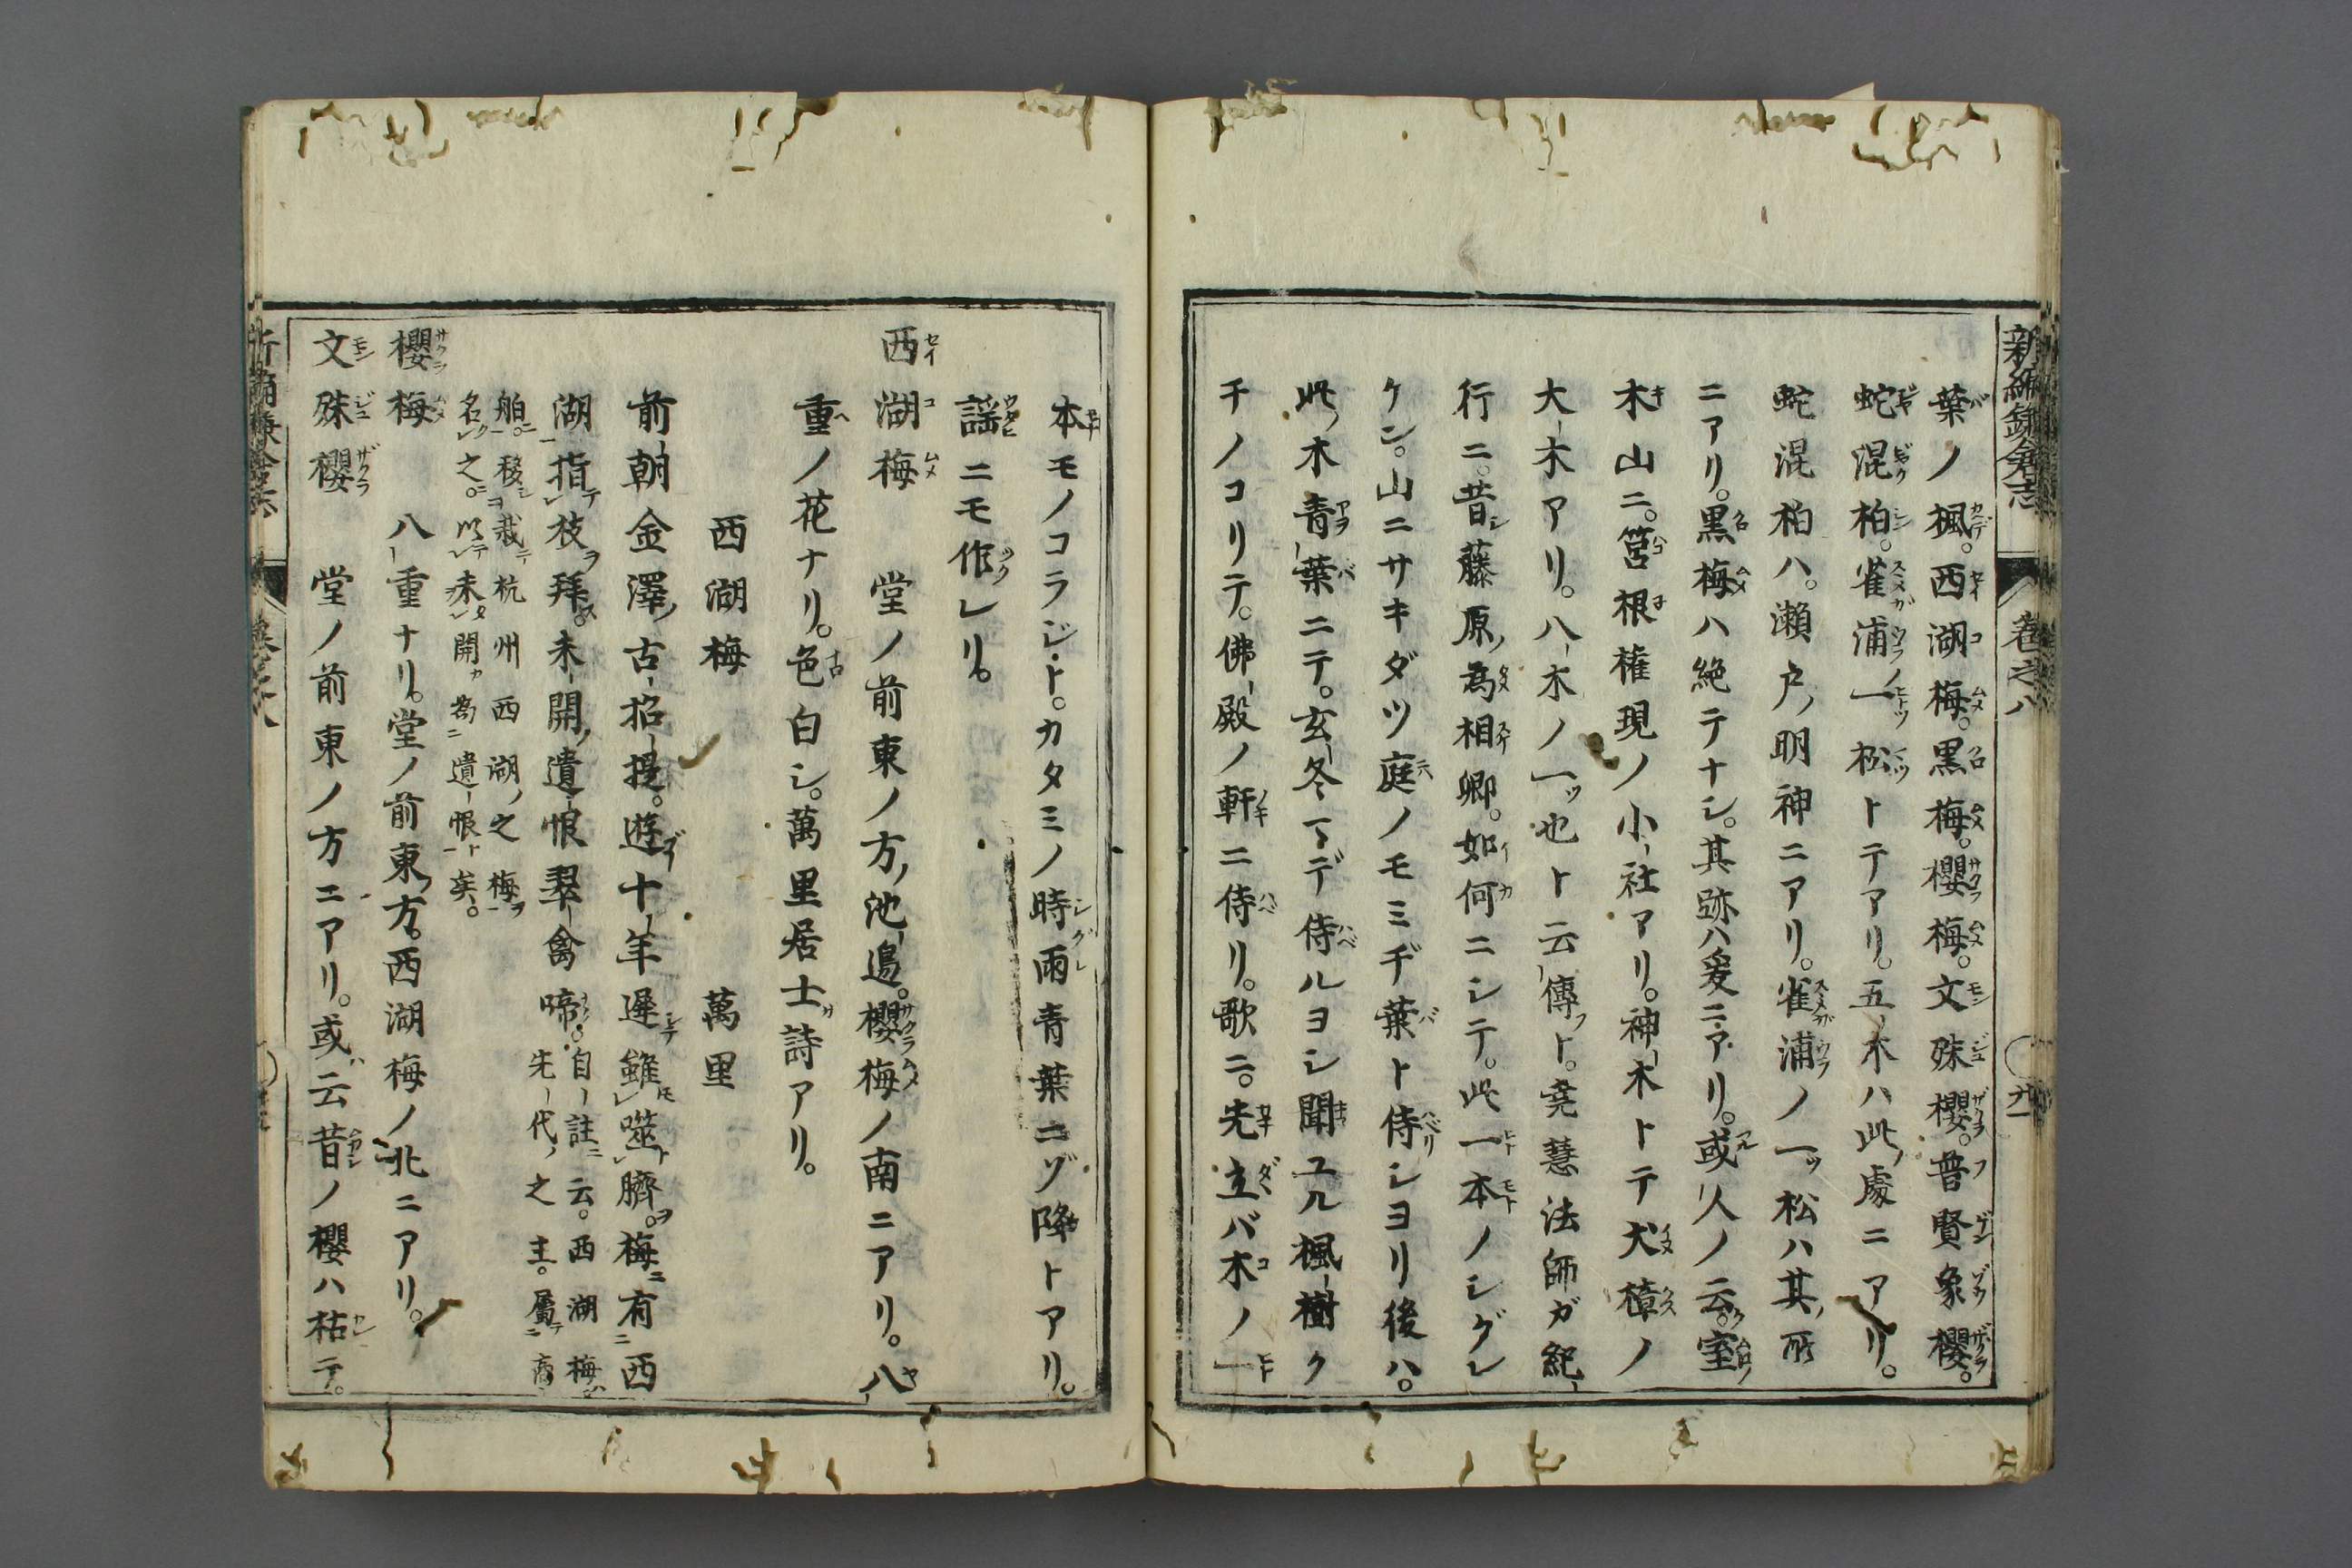 新編鎌倉志 卷之八
葉ノ楓。西湖梅。黑梅。櫻梅。文殊櫻。普賢象櫻。
蛇混柏。雀浦一松トテアリ。五木ハ此ノ處ニアリ。
蛇混柏ハ。瀬戸ノ明神ニアリ。雀浦ノ一ツ松ハ其ノ所
ニアリ。黑梅ハ絶テナシ。其跡ハ爰ニアリ。或人ノ云ク。室ノ
木山ニ。筥根權現ノ小社アリ。神木トテ犬樟ノ
大木アリ。八木ノ一ツ也ト云傳フト。堯慧法師ガ紀
行ニ。昔シ藤原ノ爲相卿。如何ニシテ。此一本ノシグレ
ケン。山ニサキダツ庭ノモミヂ葉ト侍シヨリ後ハ。
此ノ木青葉ニテ。玄冬マデ侍ルヨシ聞ユル楓樹ク
チノコリテ。佛殿ノ軒ニ侍リ。歌ニ。先立バ木ノ一
本モノコラジト。カタミノ時雨青葉ニゾ降トアリ。
謡ニモ作レリ。
西湖梅 堂ノ前東ノ方ノ池邊。櫻梅ノ南ニアリ。八
重ノ花ナリ。色白シ。萬里居士ガ詩アリ。
西湖梅 萬里
前朝金澤ノ古招提。遊十年遲シテ雖噬臍ヲ。梅ニ有西
湖指テ枝ヲ拜ス。未開ノ遺恨翠禽啼。
自註ニ云。西湖梅ハ
先代ノ之主。屬テ商
舶ニ。移シ栽テ杭州西湖ノ之梅ヲ
名ク之。以テ未タ開カ爲遺恨ト矣。
櫻梅 八重ナリ。堂ノ前東ノ方。西湖梅ノ北ニアリ。
文殊櫻 堂ノ前東ノ方ニアリ。或ハ云昔ノ櫻ハ枯テ。